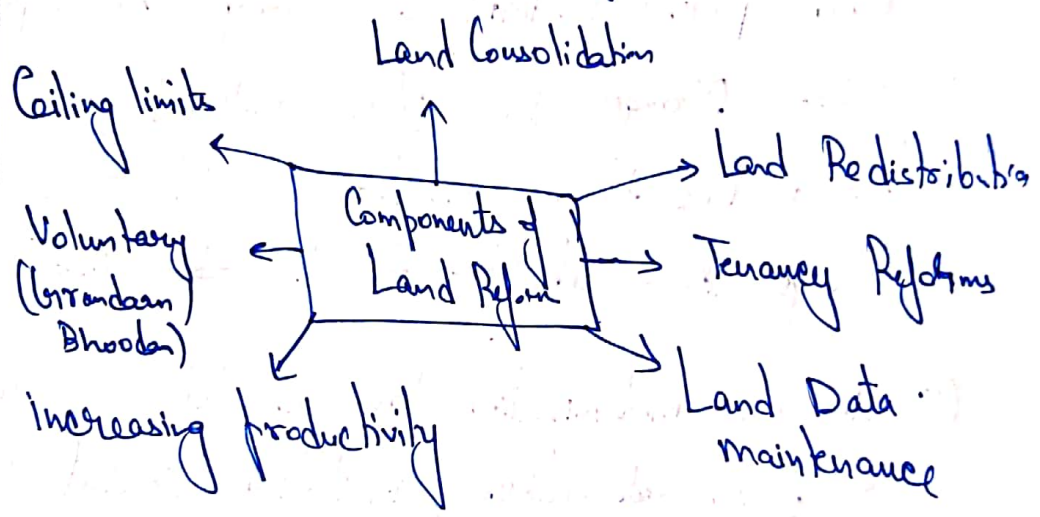 Land Consolidation
Ceiling limits
Land Redistribution
Components of
Land Reform
Voluntary
(Grramdaan
Bhoodan)
Tenancy Reforms
increasing productivity
Land Data
maintenance